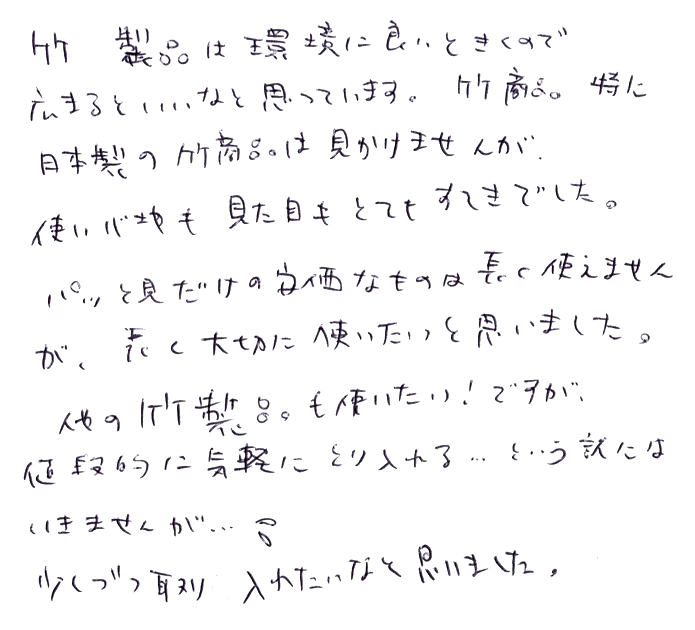 竹製品は環境に良いときくので
広まるといいなと思っています。竹商品。特に
日本製の竹商品は見かけませんが、
使い心地も見た目もとてもすてきでした。
パッと見だけの安価なものは長く使えません
が、長く大切に使いたいと思いました。
他の竹製品も使いたい!ですが、
値段的に気軽にとり入れる…という訳には
いきませんが…。
少しづつ取り入れたいなと思いました。